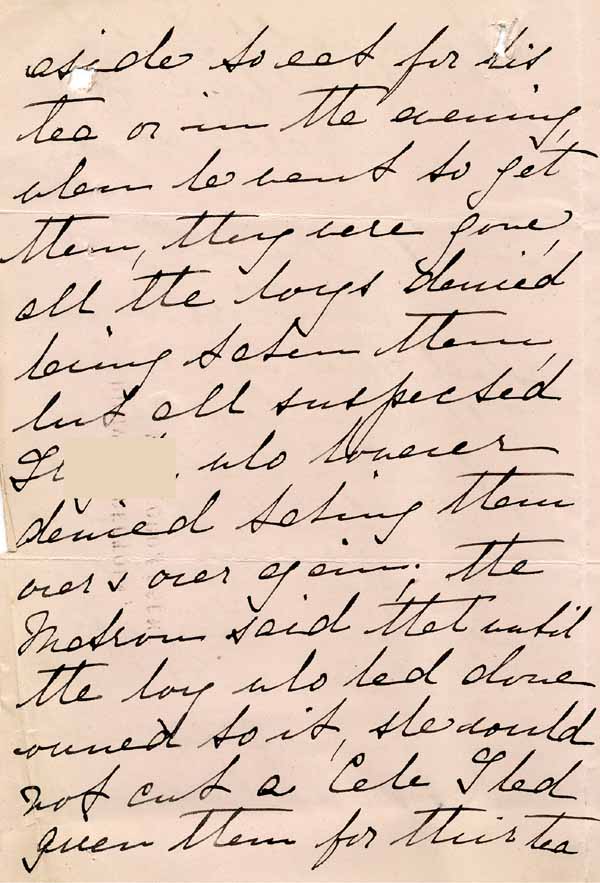 aside to eat for his
tea or in the evening,
when he went to get
them, they were gone,
all the boys denied
being taken them,
but all suspected
who however
denied taking them
over & over again; the
Matron said that until
the boy who had done
owned to it, she would
not cut a Cake I had
given them for their tea